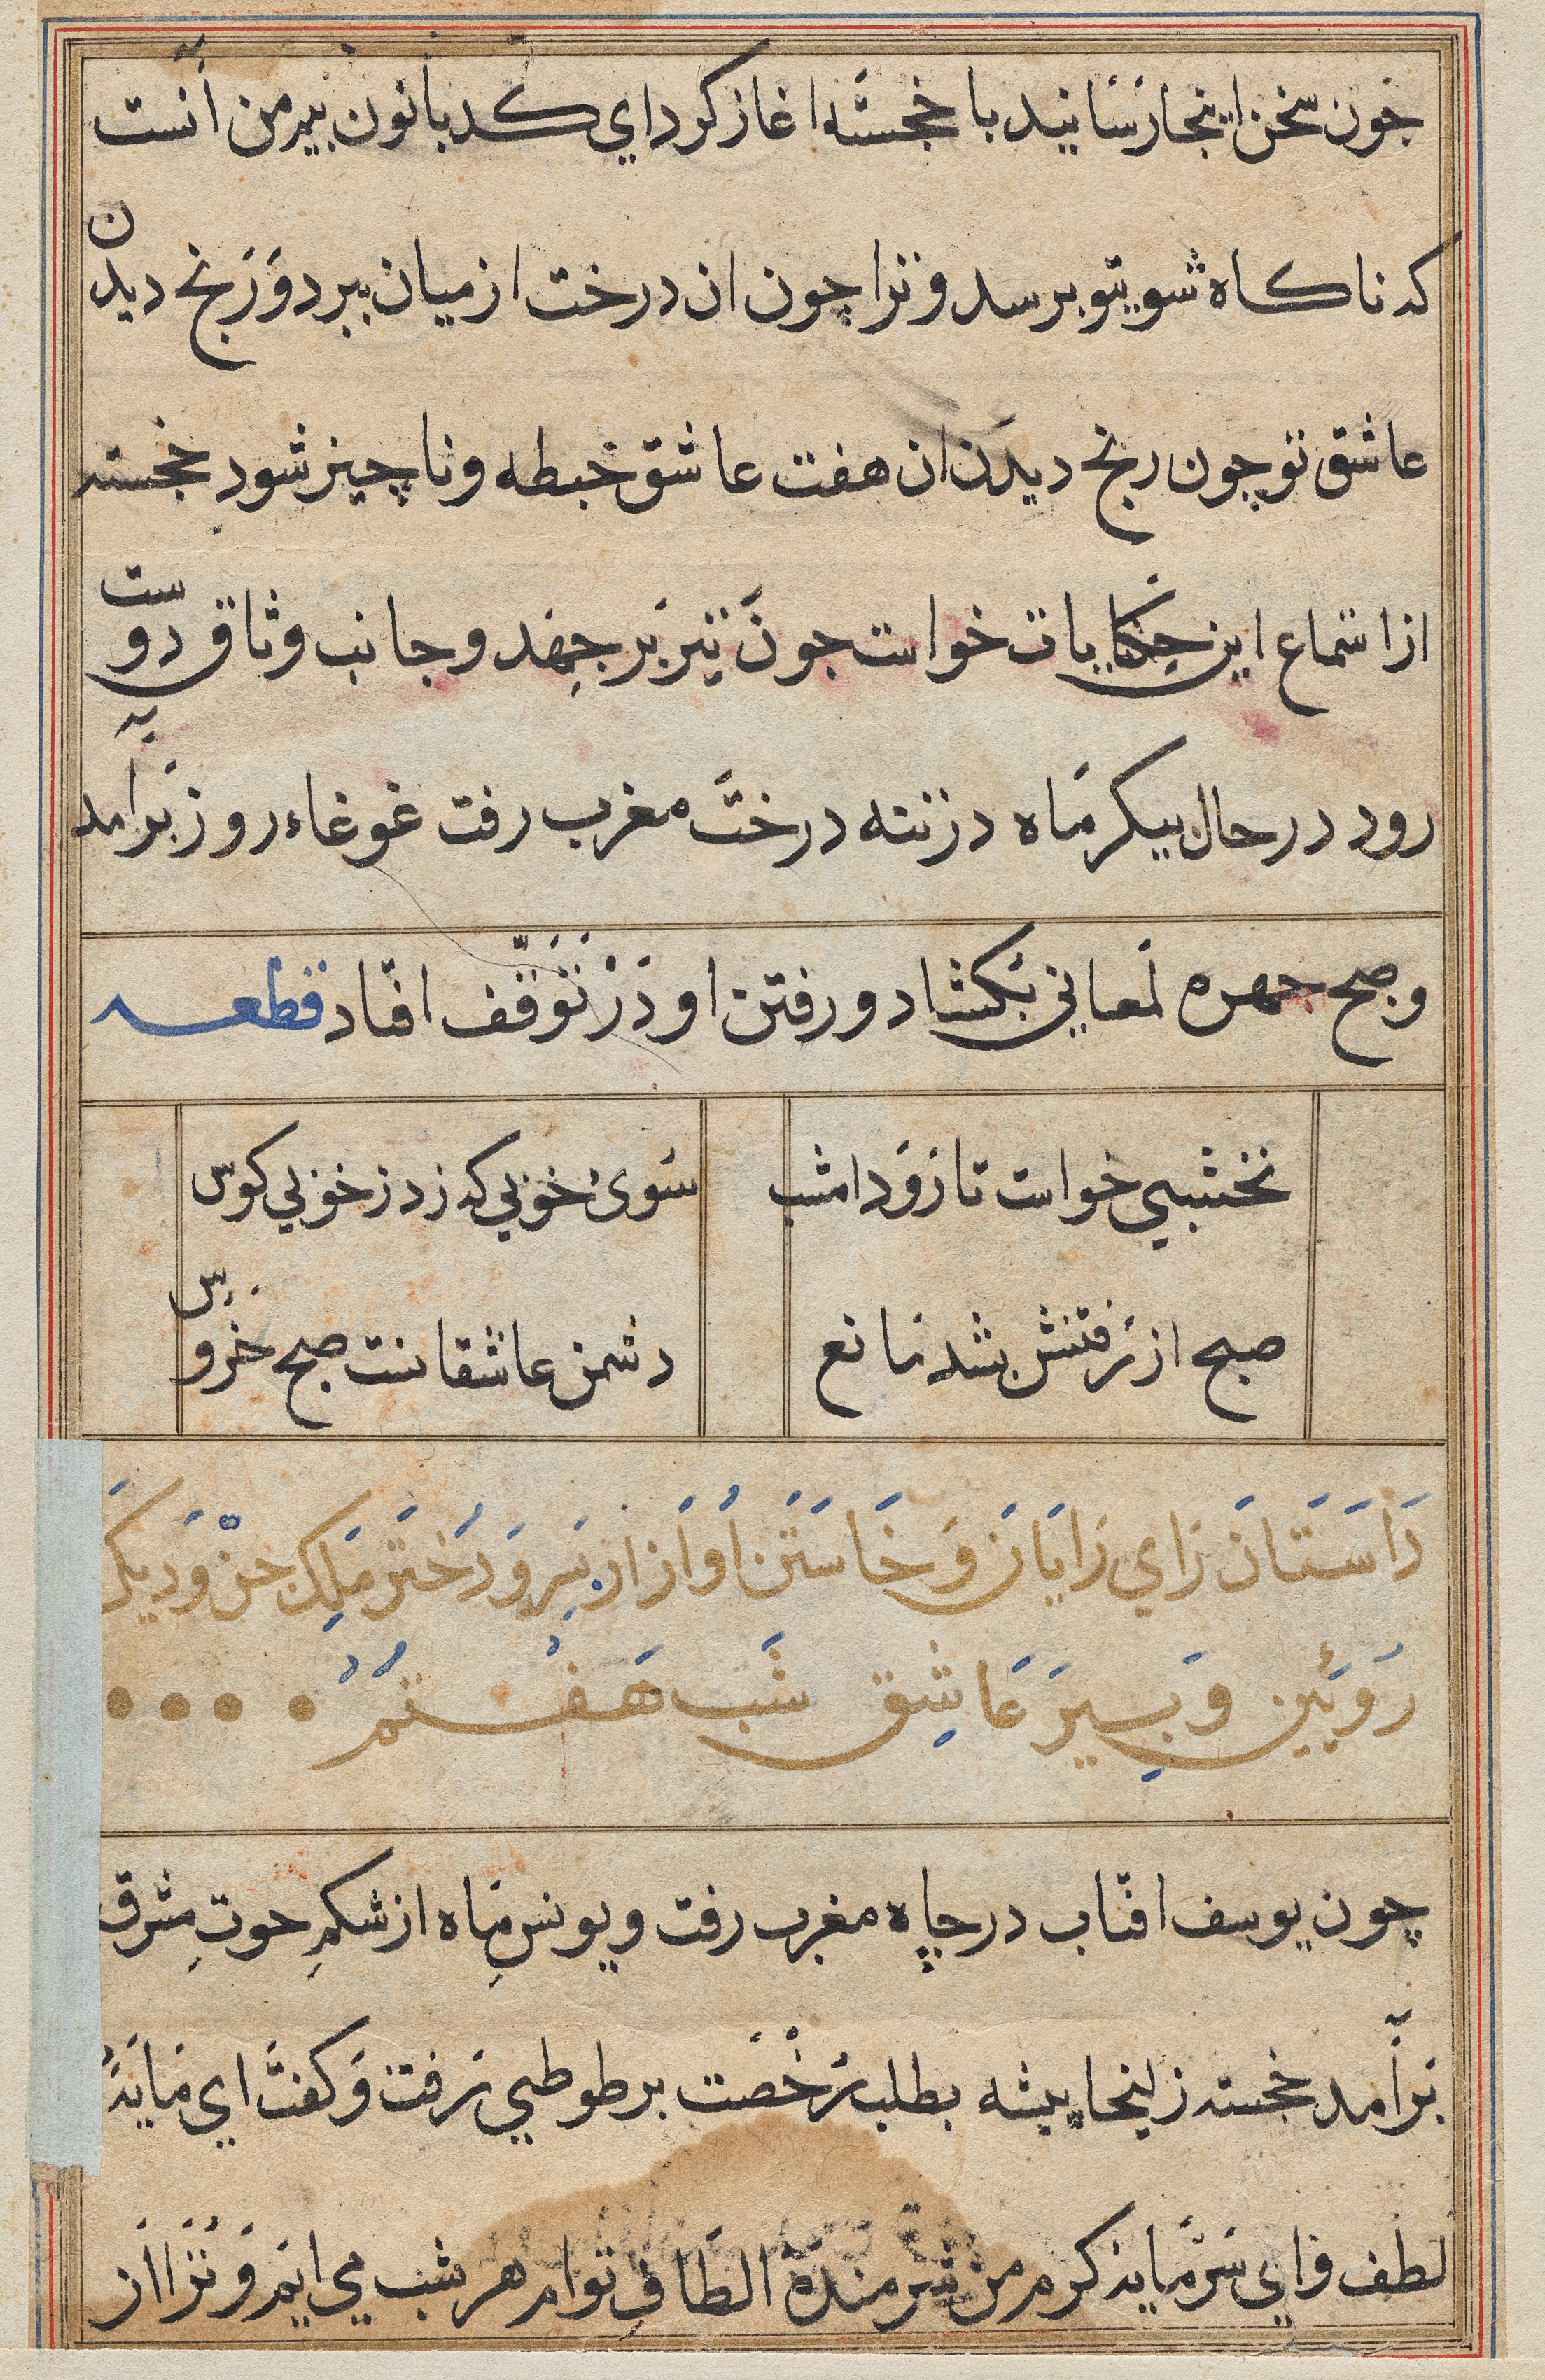 جون سخن اینجا رسانید با خجسته اغاز کرد ای کدبانو بیم من انست
که ناکاه شوی بتو برسد و ترا چون ان درخت از میان ببرد و رنج دیدن
عاشق تو چون رنج دیدن ان هفت عاشق خبطه و ناچیز شود خجسته
از استماع این حکایات خواست جون تیر بر جهد و جانب وثاق دوست
رود در حال پیکر ماه در تنه درخت مغرب رفت غوغاء روز برامد
و صبح جهره لمعانی بکشاد و رفتن او در توقف افتاد قطعه
نخشبی خواست تا رود امشب سوی خوبی که زد ز خوبی کوس
صبح از رفتنش بشد مانع دشمن عاشقانست صبح خروس
داستان رای رایان و خاستن اواز از بسر و دختر ملک جن و دیکر
رویین و بسیر عاشق شب هفتم
چون یوسف افتاب در چاه مغرب رفت و یونس ماه از شکم حوت مشرق
برآمد خجسته زلیخا پیشه بطلب رخصت بر طوطی رفت و کفت ای مایهٔ
لطف و ای سرمایه کرم من شرمندهٔ الطاف توام هر شب می ایم و ترا از